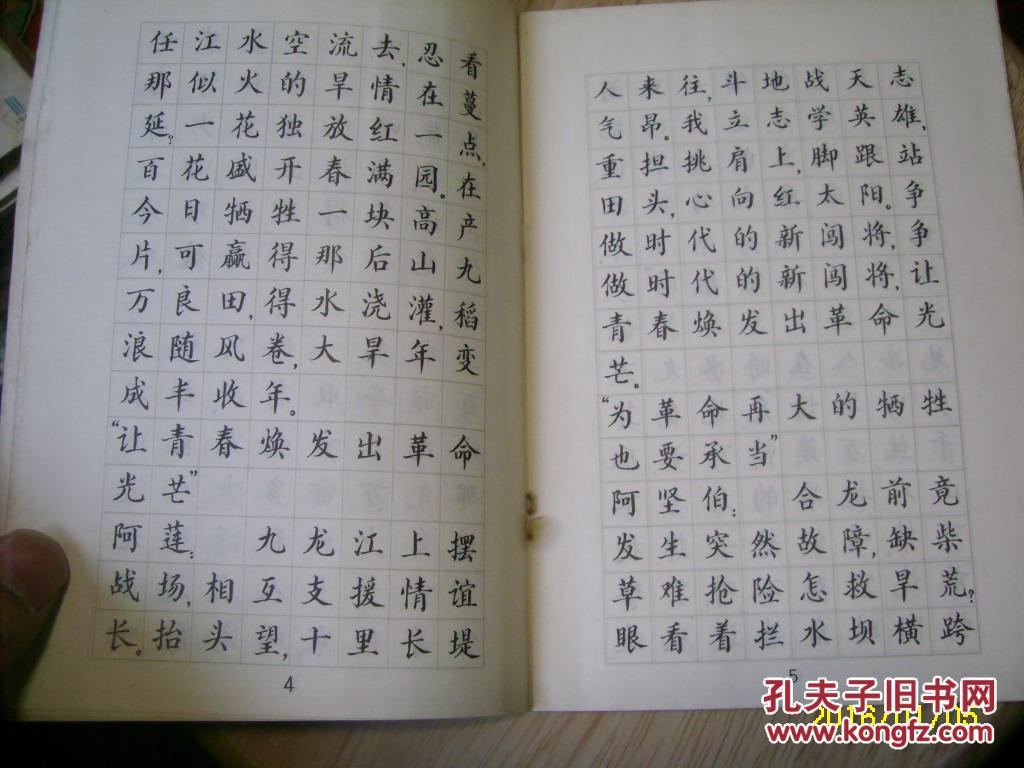 任江水空流去,忍看
那似火的旱情在蔓
延?一花独放红一点,
百花盛开春满园。在
今日牺牲一块高产
片,可赢得那后山九
万良田,得水浇灌,稻
浪随风卷,大旱年变
成丰收年。
“让青春焕发出革命
光芒”
阿莲: 九龙江上摆
战场,相互支援情谊
长。抬头望,十里长堤
4
人来往,斗地战天志
气昂。我立志学英雄,
重担挑肩上,脚跟站
田头,心向红太阳。争
做时代的新闯将,争
做时代的新闯将,让
青春焕发出革命光
芒。
“为革命再大的牺牲
也要承当”
阿坚伯: 合龙前竟
发生突然故障,缺柴
草难抢险怎救旱荒?
眼看着拦水坝横跨
5
孔夫子旧书网
www.kongfz.com